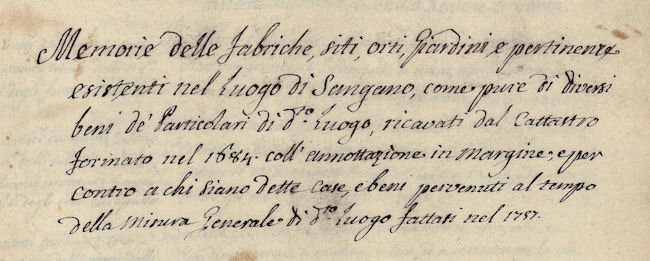 Memorie delle fabriche, siti, orti, Giardini, e pertinenze
esistenti nel Luogo di Sangano, come pure di diversi
beni de' Particolari di d.to Luogo, ricavati dal Cattastro
formato nel 1684. coll'annottazione in Margine, e per
contro a chi siano dette Case, e beni pervenuti al tempo
della Misura Generale di d.to Luogo fattasi nel 1757.